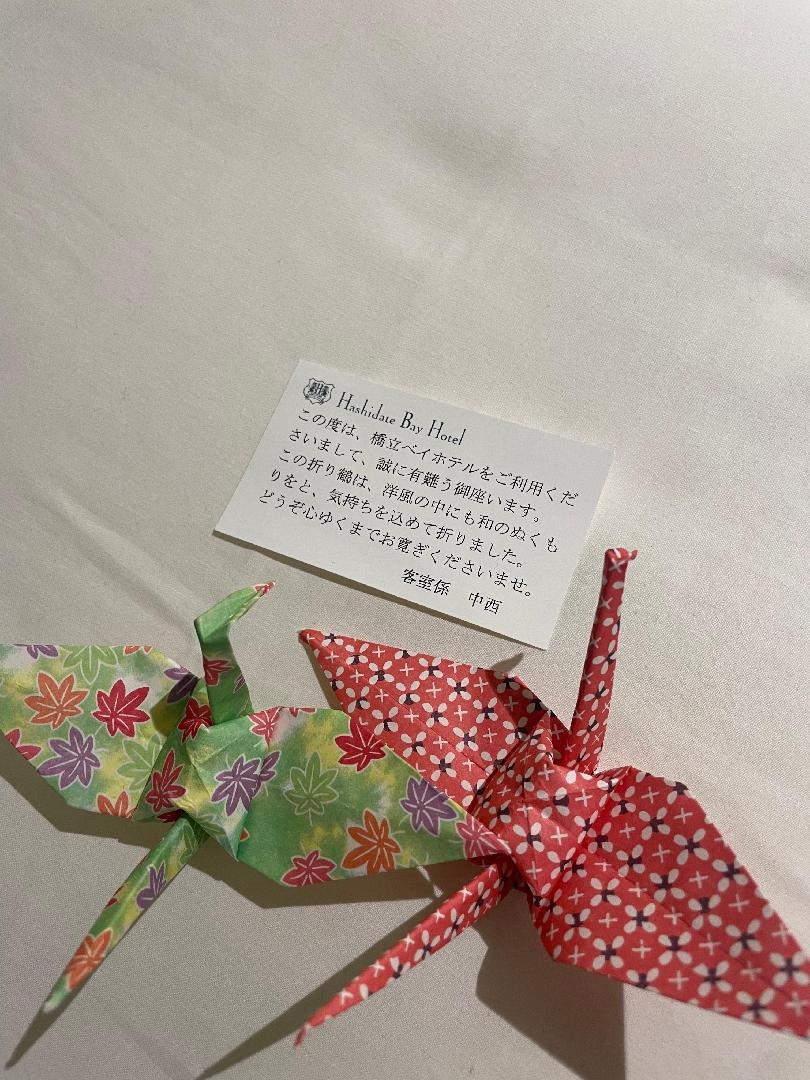 Hashidate Bay Hotel
この度は、橋立ベイホテルをご利用くだ
さいまして、誠に有難う御座います。
この折り鶴は、洋風の中にも和のぬくも
りをと、気持ちを込めて折りました。
どうぞ心ゆくまでお寛ぎくださいませ。
客室係　中西